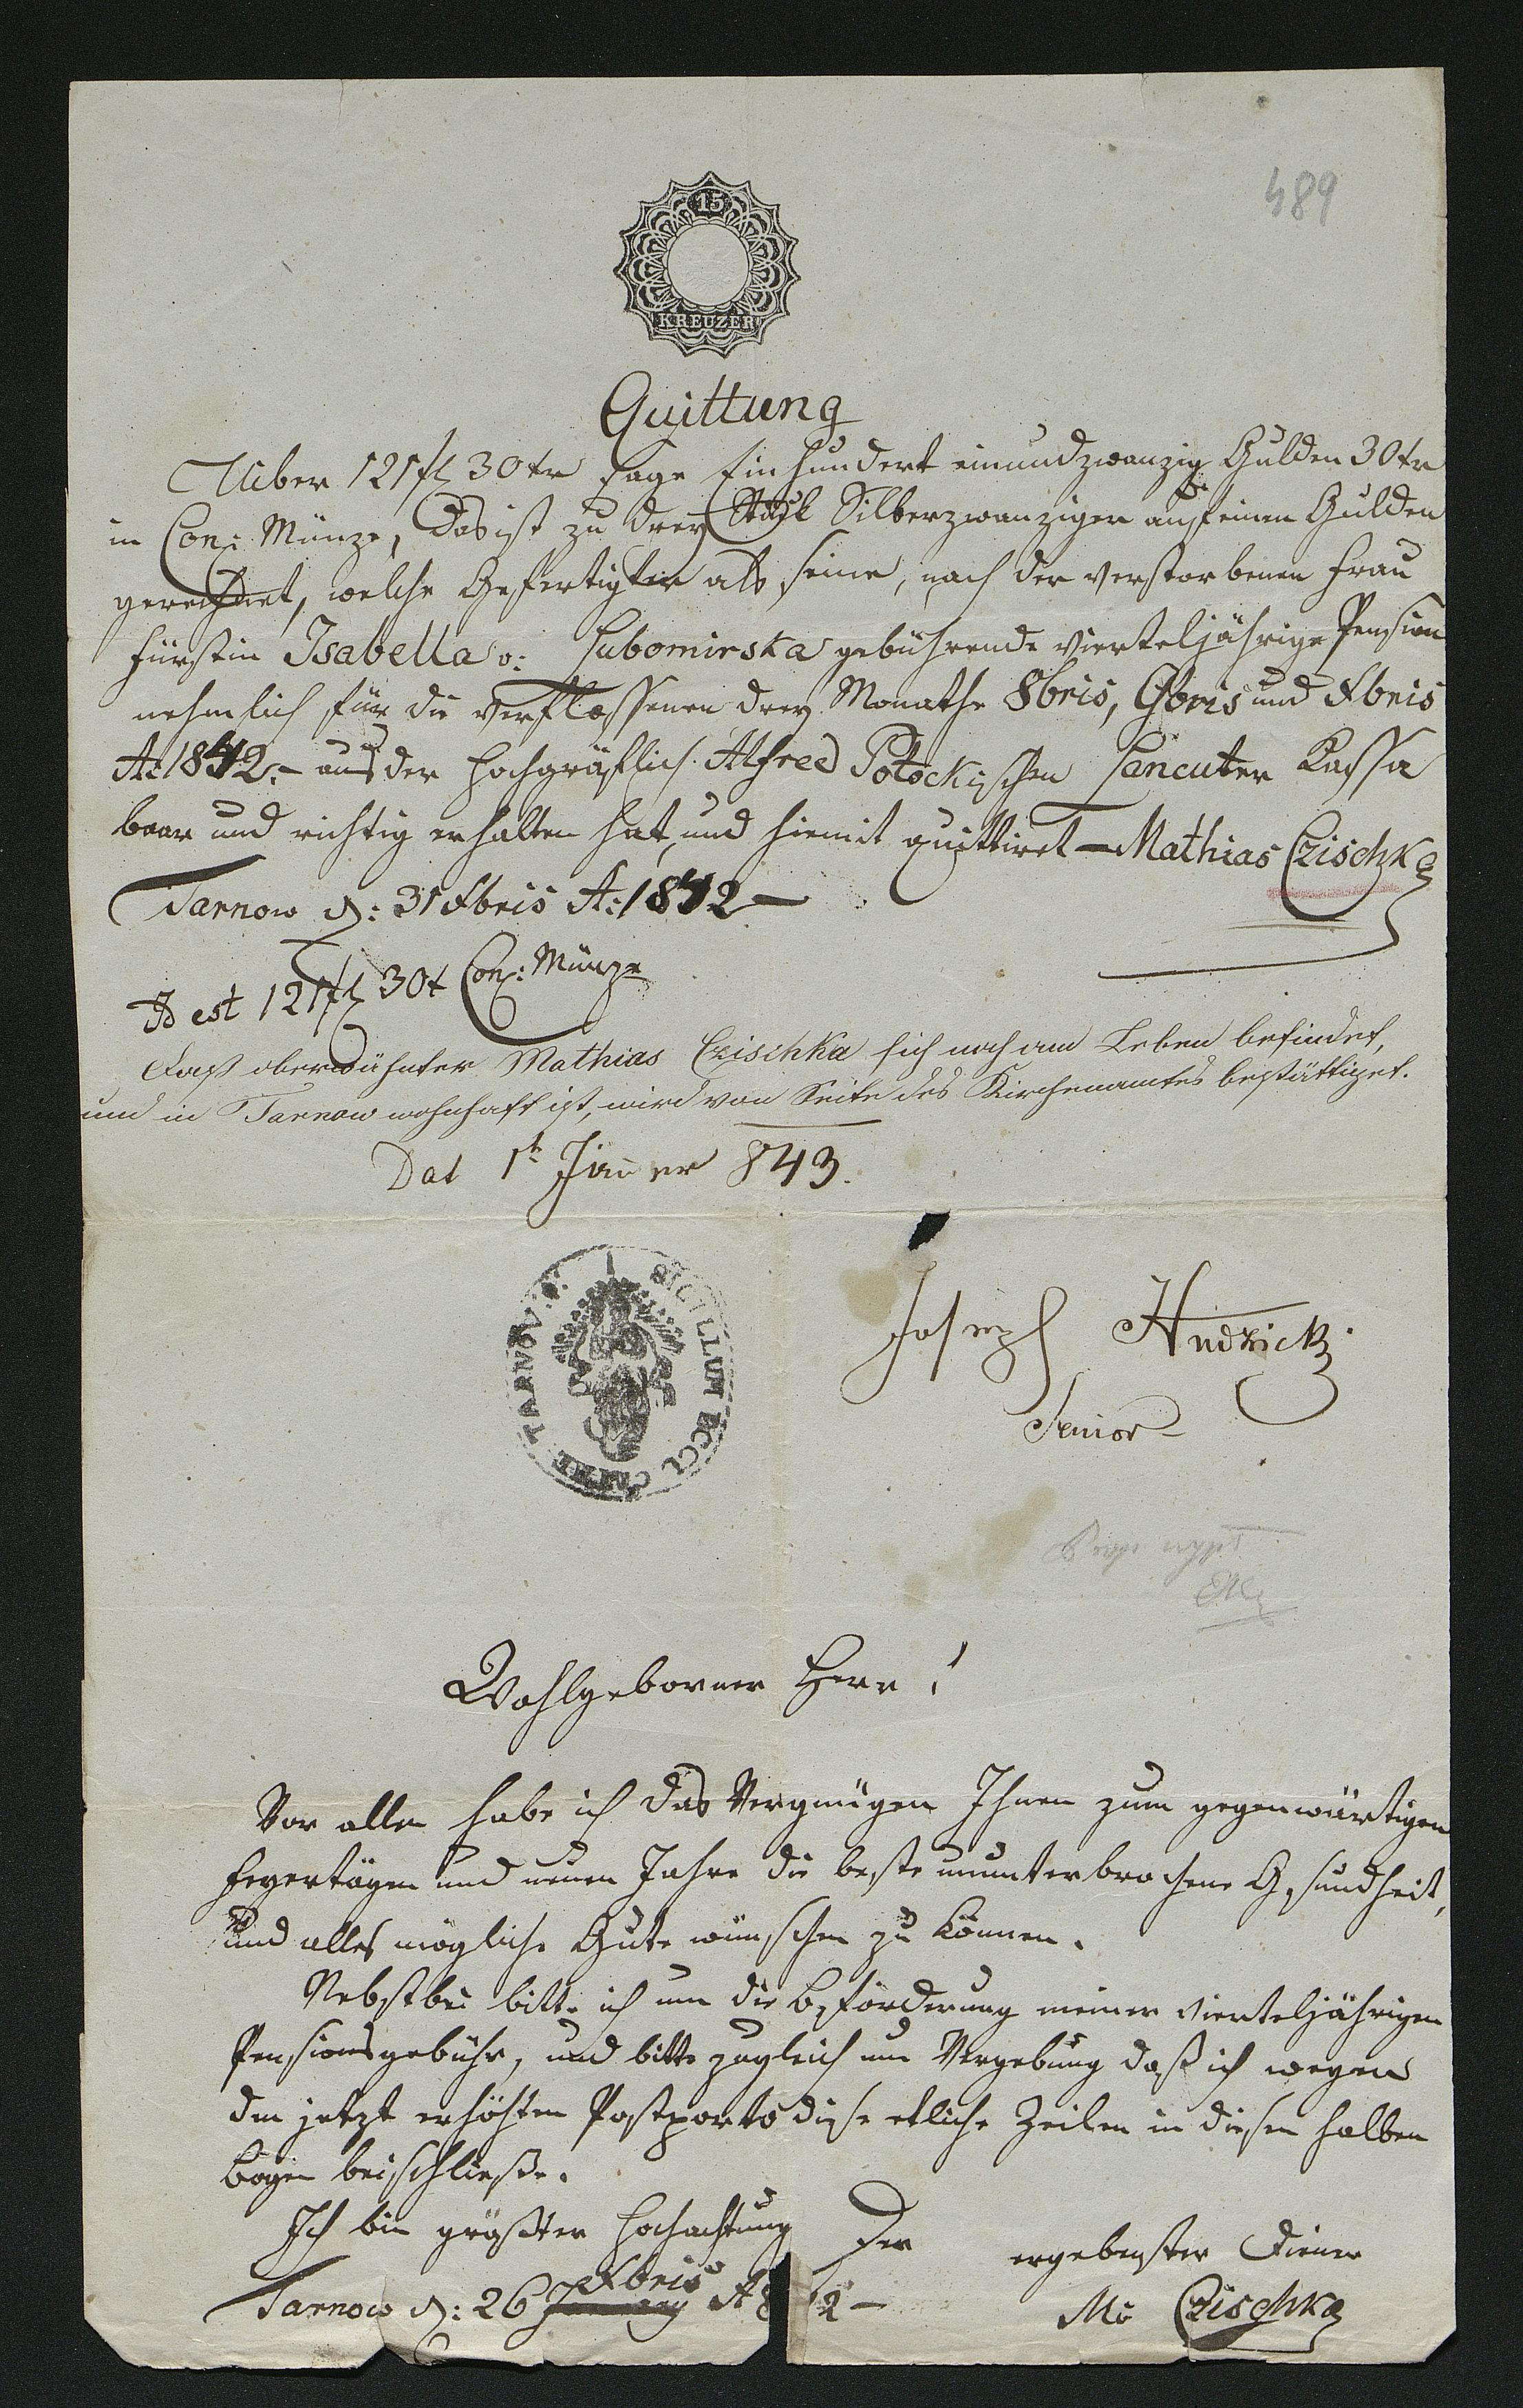 489
15
KREUZER
Quittung
Uiber 121 fl 30 xr sage Ein hundert einundzwanzig Gulden 30 xr
in Con: Münze, Das ist zu drey Stück Silberzwanziger auf einen Gulden
gerechnet, welche Gefertigter als seine, nach der verstorbenen Frau
Fürstin Isabella v: Lubomirska gebührende vierteljährige Pension
nehmlich für die verflossenen drey Monathe 8bris, 9bris und Xbris
A: 1842.- aus der Hochgräflich. Alfred Potockischen Lancuter Kassa
baar und richtig erhalten hat, und hiemit quittiret — Mathias Czischka
Tarnow d: 31 Xbris A: 1842 —
Id est 121 fl 30 x Con: Münze
Daß oberwähnter Mathias Czischka sich noch am Leben befindet,
und in Tarnow wohnhaft ist, wird von Seite des Kirchenamtes bestättiget.
Dat 1t Jäner 843.
SIGILLUM ECCL TARNOV
Joseph
Senior
Wohlgeborner Herr!
Vor allen habe ich das Vergnügen Ihnen zum gegenwärtigen
Feyertägen und neuen Jahre die beste ununterbrochene Gesundheit,
und alles mögliche Gute wünschen zu können.
Nebstbei bitte ich um die Beförderung meiner vierteljährigen
Pensionsgebühr, und bitte zugleich um Vergebung daß ich wegen
den jetzt erhöhten Postporto diese etliche Zeilen in diesen halben
Bogen beischließe.
Ich bin größter Hochachtung Der ergebenster Diener
Xbris
Tarnow d: 26 A 8 2 — M: Czischka